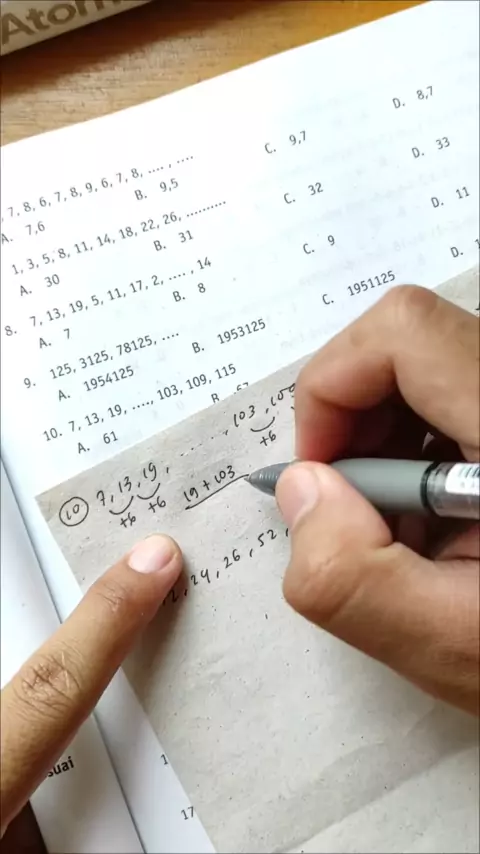 Atom
, 7, 8, 6, 7, 8, 9, 6, 7, 8, .... , ....
A. 7,6 B. 9,5 C. 9,7 D. 8,7
1, 3, 5, 8, 11, 14, 18, 22, 26, ..........
A. 30 B. 31 C. 32 D. 33
8. 7, 13, 19, 5, 11, 17, 2, .... , 14
A. 7 B. 8 C. 9 D. 11
9. 125, 3125, 78125, ....
A. 1954125 B. 1953125 C. 1951125 D. 1
10. 7, 13, 19, ...., 103, 109, 115
A. 61 B.
10 7, 13, 19, ......, 103, 109
+6 +6 +6
19 + 103
, 24, 26, 52,
suai
17